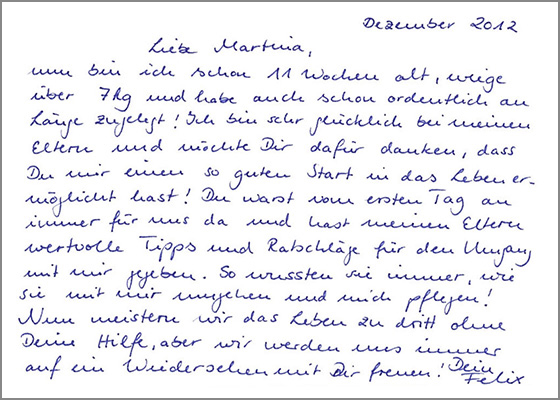 Dezember 2012
Liebe Martina,
nun bin ich schon 11 Wochen alt, wiege
über 7kg und habe auch schon ordentlich an
Länge zugelegt! Ich bin sehr glücklich bei meinen
Eltern und möchte Dir dafür danken, dass
Du mir einen so guten Start in das Leben er-
möglicht hast! Du warst vom ersten Tag an
immer für uns da und hast meinen Eltern
wertvolle Tipps und Ratschläge für den Umgang
mit mir gegeben. So wussten sie immer, wie
sie mit mir umgehen und mich pflegen!
Nun meistern wir das Leben zu dritt ohne
Deine Hilfe, aber wir werden uns immer
auf ein Wiedersehen mit Dir freuen! Dein
Felix